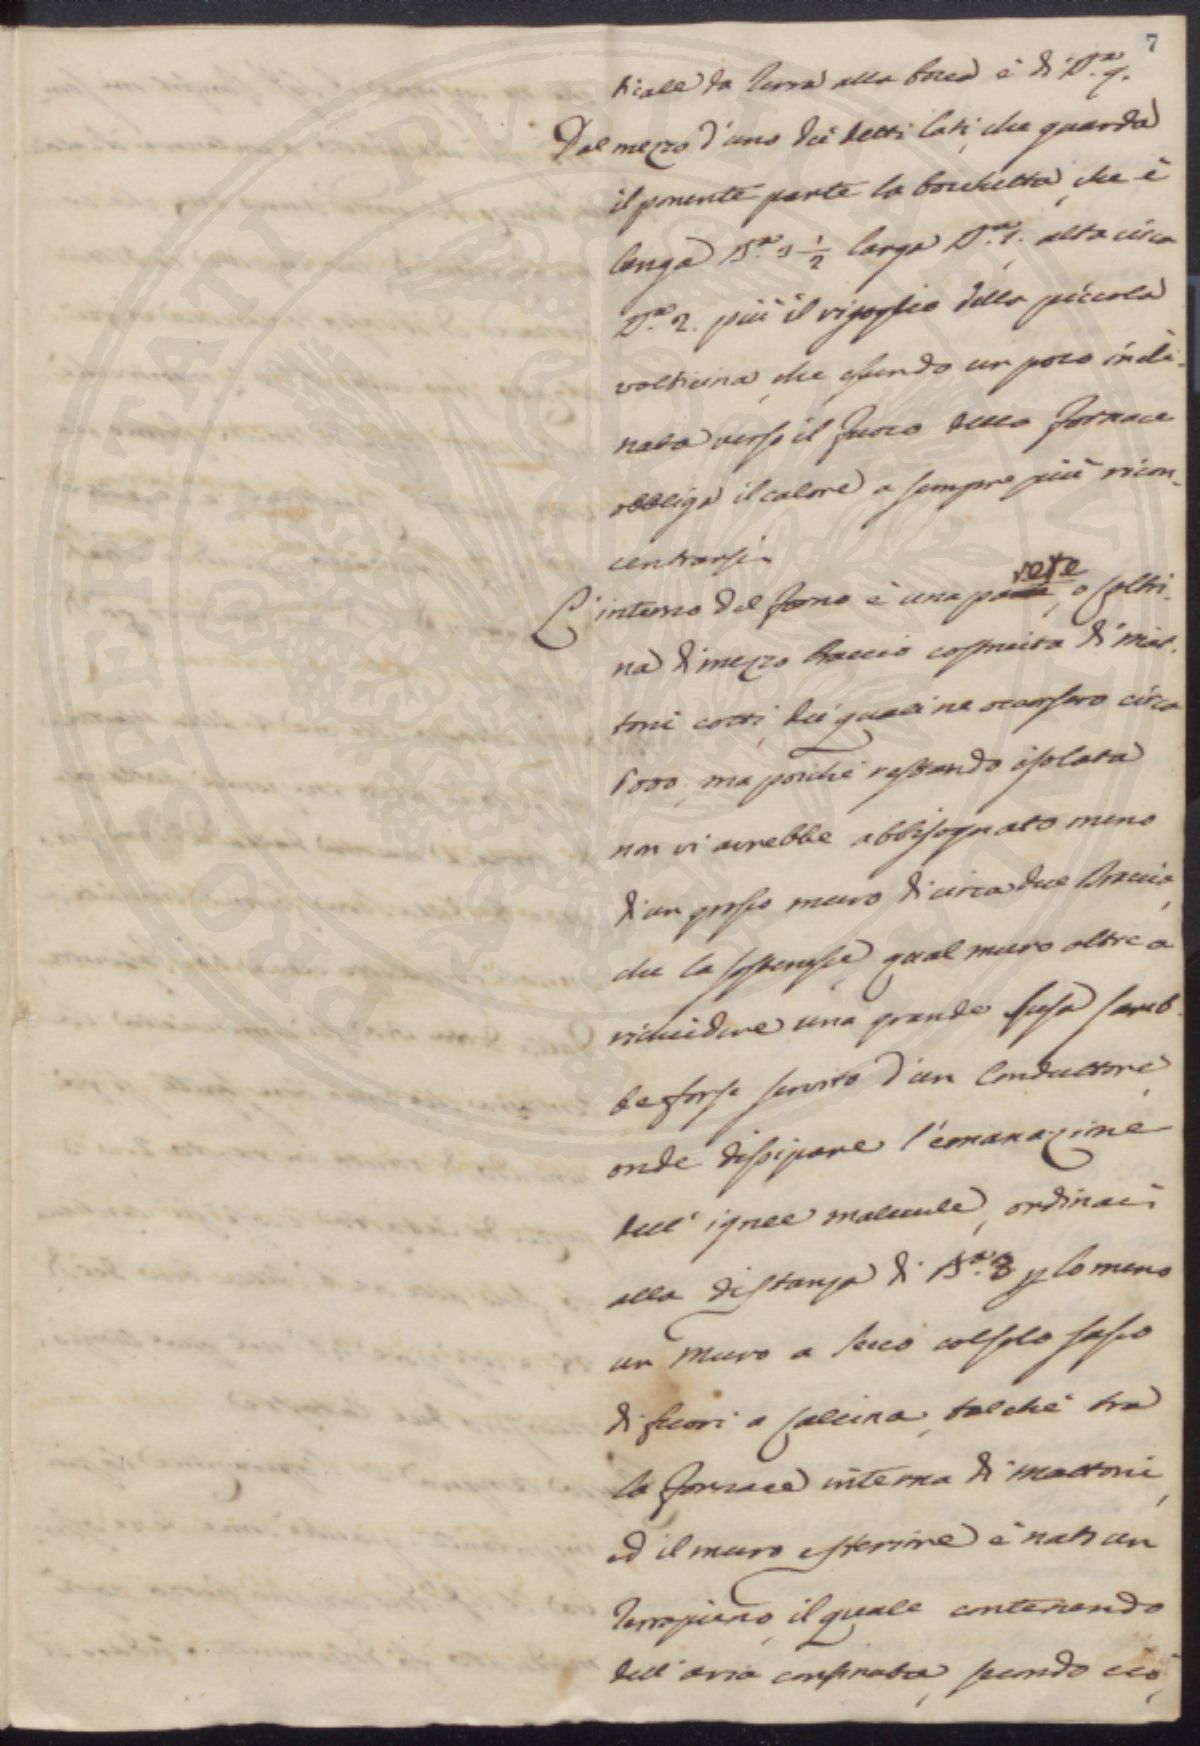 7
ticale da terra alla bocca è di B.a 7.
Dal mezzo d'uno dei detti lati, che guarda
il ponente parte la bocchetta, che è
longa B.a 3 1/2 larga B.a 1. alta circa
B.a 2. più il rigoglio della piccola
volticina, che essendo un poco incli-
nata verso il fuoco della fornace
obbliga il calore a sempre più ricon-
centrarsi.
L'interno del forno è una veste, o foltri-
na di mezzo braccio costruita di mat-
toni cotti, dei quali ne occorsero circa
6000, ma poichè restando isolata
non vi avrebbe abbisognato meno
di un grosso muro di circa due Braccia,
che la sostenesse, qual muro oltre a
richiedere una grande spesa sareb-
be forse servito d'un Conduttore,
onde dissipare l'emanazione
dell'ignee molecule, ordinai
alla distanza di B.a 3 p lo meno
un muro a secco col solo sasso
di fuori a calcina, talchè tra
la fornace interna di mattoni,
ed il muro esteriore è nato un
Terrapieno, il quale contenendo
dell'aria confinata, secondo ciò,
PROSPERITATI PVBLICAE